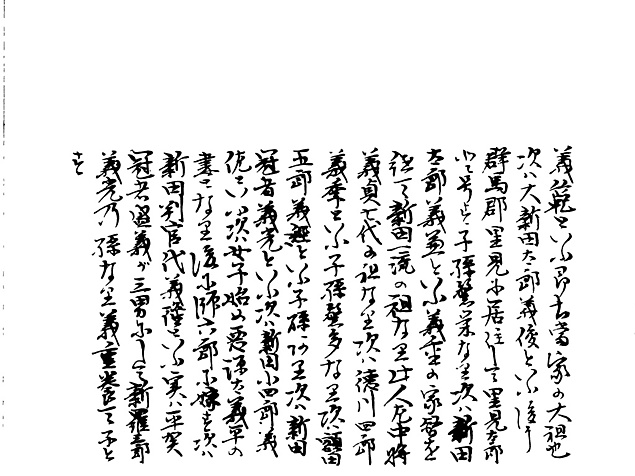 義範といふ即ち当家の大祖也
次ハ大新田太郎義俊といふ後に
群馬郡里見に居住して里見太郎
と号す子孫繁栄なり次ハ新田
太郎義兼といふ義重の家督を
継て新田一流の祖なり此人左中将
義貞七代の祖なり次ハ徳川四郎
義季といふ子孫繁多なり次ハ額田
五郎義経といふ子孫あり次ハ新田
冠者義光といふ次ハ新田小四郎義
佐といふ次ハ女子始め悪源太義平の
妻となり後に師六郎に嫁す次ハ
新田判官代義隆といふ実ハ平賀
冠者盛義が三男にして新羅三郎
義光乃孫なり義重養て子と
す